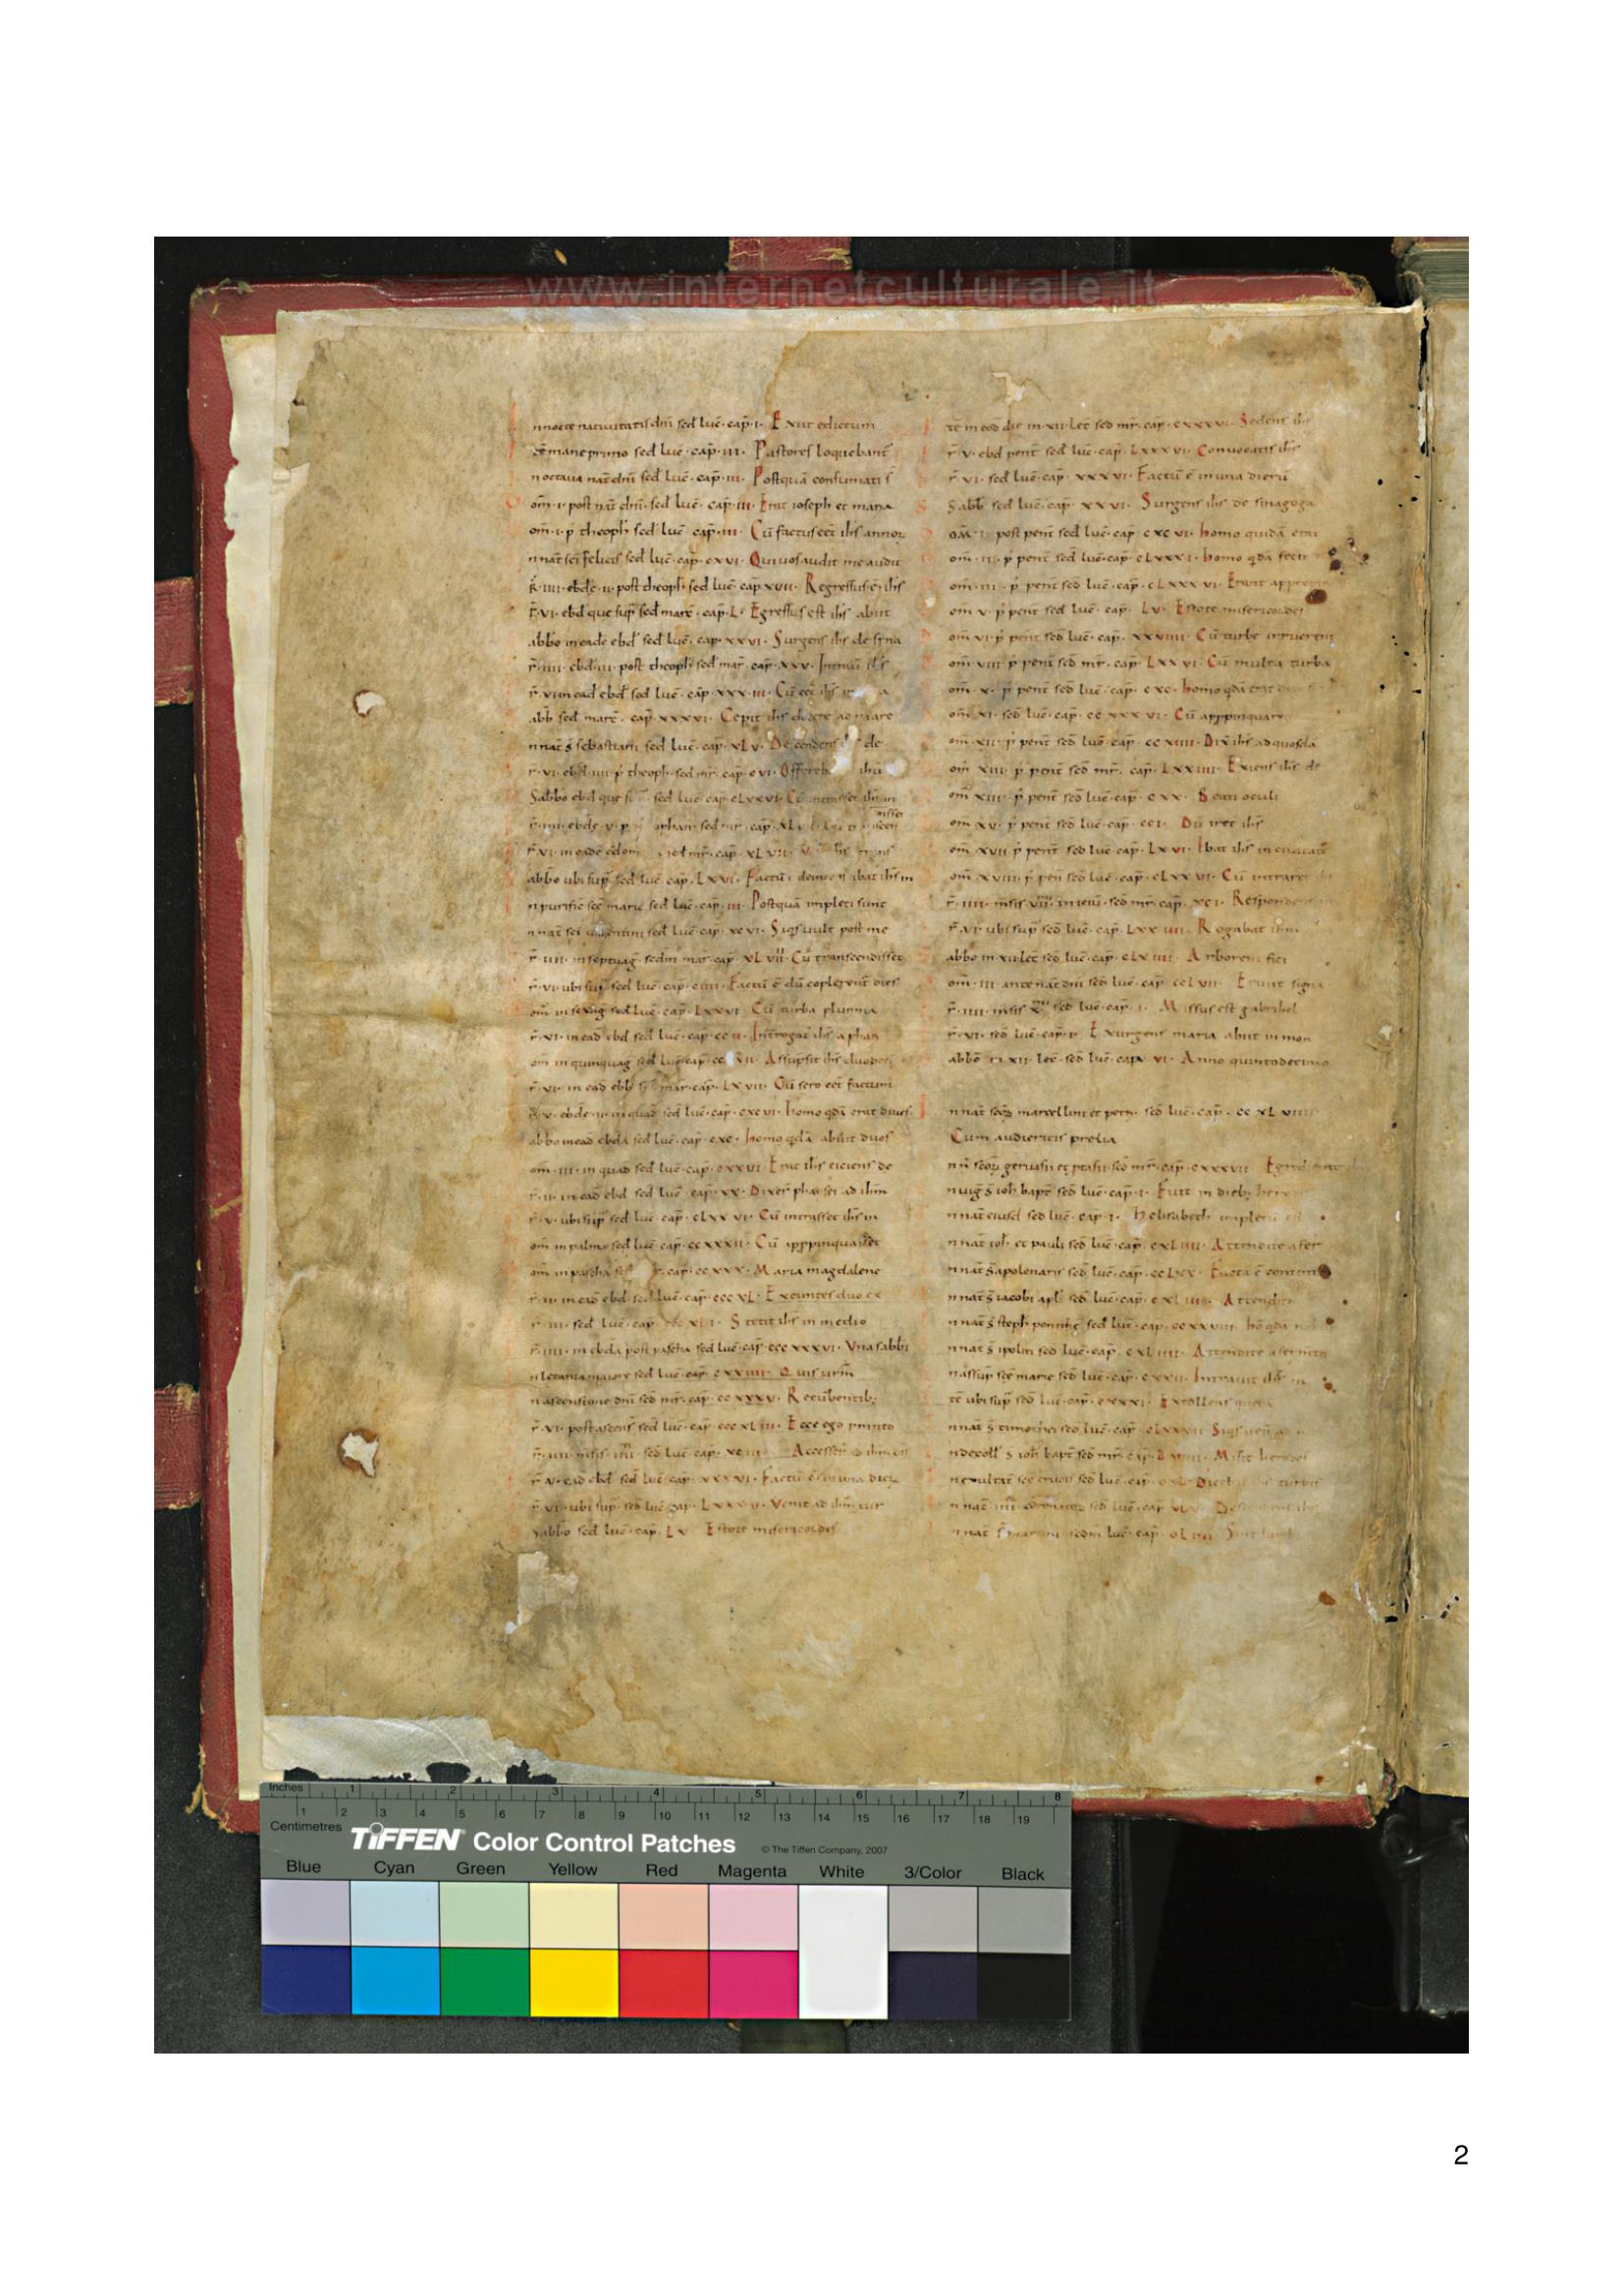 www.internetculturale.it
nnocte nativitatis dm̄ sed̄ luc̄ · cap̄ · i · Exiit edictum
mane primo sed̄ luc̄ · cap̄ · iii · Pastores loquebant̄
n octava nat̄ dm̄ sed̄ luc̄ · cap̄ · iii · Postquā consumati s̄
om̄ · i · post nat̄ dm̄ · sed̄ luc̄ · cap̄ · iii · Erat ioseph et maria
om̄ · i · p̄ theoph̄ sed̄ luc̄ cap̄ · iii · Cū factus eēt ihs̄ annoꝝ
n nat̄ sc̄i felicis sed̄ luc̄ · cap̄ · cxvi · Qui vos audit me audit
· iiii · ebdc̄ · ii · post theoph̄ sed̄ luc̄ cap̄ xvii · Regressus ē ihs̄
· vi · ebd̄ que sup̄ sed̄ marc̄ · cap̄ · L · Egressus est ihs̄ abiit
abbō in eadē ebd̄ sed̄ luc̄ · cap̄ · xxvi · Surgens ihs̄ de syna
r̄ · iiii · ebd̄ · iii · post theoph̄ sed̄ mar̄ · cap̄ · xxv ·
r̄ · vi in ead̄ ebd̄ sed̄ luc̄ · cap̄ · xxx · iii · Cū eēt ihs̄
abb̄ sed̄ marc̄ · cap̄ · xxxvi · Cepit ihs̄ docere ad mare
n nat̄ s̄ sebastiani sed̄ luc̄ · cap̄ · xLv · Descendens de
r̄ · vi · ebd̄ · iiii · p̄ theoph̄ · sed̄ mr̄ · cap̄ · cvi ·
Sabbō ebd̄ que sed̄ luc̄ · cap̄ · cLxxvi ·
r̄ · vi · in eadē mr̄ · cap̄ · xLvii ·
abbō ubi sup̄ sed̄ luc̄ cap̄ · Lxvi · Factū ē deinceps ibat ihs̄ in
n purific̄ sc̄e marie sed̄ luc̄ · cap̄ · iii · Postquā impleti sunt
n nat̄ sc̄i valentini sed̄ luc̄ · cap̄ · xcvi · Siqs̄ vult post me
r̄ · iiii · in septuaḡ · sedm̄ mar̄ · cap̄ · xLvii · Cū transcendisset
r̄ · vi · ubi sup̄ sed̄ luc̄ · cap̄ · ciiii · Factū ē dū coplerent̄ dies
om̄ in sexaḡ sed̄ luc̄ · cap̄ · Lxxvi · Cū turba plurima
r̄ · vi · in ead̄ ebd̄ sed̄ luc̄ · cap̄ · ccii · a phar̄
om̄ in quinquaḡ sed̄ luc̄ cap̄ · Assūpsit ihs̄ duodecī
r̄ · vi · in ead̄ ebb̄ mar̄ · cap̄ · Lxvii · Cū sero eēt factum
· v · ebdc̄ · ii · in quad̄ sed̄ luc̄ · cap̄ · cxcvi · homo qdā erat dives
abbo in ead̄ ebdā sed̄ luc̄ · cap̄ · cxc · homo qdā abuit duos
om̄ · iii · in quad̄ sed̄ luc̄ · cap̄ · cxxvi · Erat ihs̄ eiciens de
r̄ · ii · in ead̄ ebd̄ sed̄ luc̄ · cap̄ · xx · Dixer̄ pharisei ad ihm̄
r̄ · v · ubi sup̄ sed̄ luc̄ · cap̄ · cLxxvi · Cū intrasset ihs̄ in
om̄ in palmis sed̄ luc̄ · cap̄ · ccxxxii · Cū appinquasset
om̄ in pascha cap̄ · ccxxx · Maria magdalene
r̄ · ii · in ead̄ ebd̄ sed̄ luc̄ · cap̄ · cccxL · Exeuntes duo ex
r̄ · iii · sed̄ luc̄ · cap̄ · Stetit ihs̄ in medio
r̄ · iiii · in ebdā post pascha sed̄ luc̄ · cap̄ · cccxxxvi · Una sabbī
n letania maiore sed̄ luc̄ · cap̄ · cxxiiii · Quis urm̄
n ascensione dm̄ sed̄ mr̄ · cap̄ · ccxxxv · Recūbentib;
r̄ · vi · post ascens̄ sed̄ luc̄ · cap̄ · cccxLiii · Ecce ego pmitto
sed̄ luc̄ · cap̄ · Accesser̄
r̄ · v · ead̄ ebd̄ sed̄ luc̄ · cap̄ · xxxvi · Factū ē in una dieꝝ
r̄ · vi · ubi sup · sed̄ luc̄ cap̄ · Venit ad ihm̄ vir
Sabbō sed̄ luc̄ · cap̄ · Lv · Estote misericordes
tē in eod̄ die in · xii · lec̄ sed̄ mr̄ · cap̄ · cxxxvi · Sedens ihs̄
r̄ · v · ebd̄ pent̄ sed̄ luc̄ · cap̄ · Lxxxvi · Convocatis ihs̄
r̄ · vi · sed̄ luc̄ · cap̄ · xxxvi · Factū ē in una dierū
Sabb̄ sed̄ luc̄ · cap̄ · xxvi · Surgens ihs̄ de sinagoga
om̄ · i · post pent̄ sed̄ luc̄ · cap̄ · cxcvi · homo quidā erat
om̄ · ii · p̄ pent̄ sed̄ luc̄ · cap̄ · cLxxxi · homo qdā fecit
om̄ · iii · p̄ pent̄ sed̄ luc̄ · cap̄ · cLxxxvi · Erant
om̄ v · p̄ pent̄ sed̄ luc̄ · cap̄ · Lv · Estote misericordes
om̄ vi · p̄ pent̄ sed̄ luc̄ · cap̄ · xxviiii · Cū turbe irruerent
om̄ viii · p̄ pent̄ sed̄ mr̄ · cap̄ · Lxxvi · Cū multa turba
om̄ · x · p̄ pent̄ sed̄ luc̄ · cap̄ · cxc · homo qdā erat
om̄ xi · sed̄ luc̄ · cap̄ · ccxxxvi · Cū apppinquaret
om̄ · xii · p̄ pent̄ sed̄ luc̄ · cap̄ · ccxiiii · Dix̄ ihs̄ ad quosdā
om̄ xiii · p̄ pent̄ sed̄ mr̄ · cap̄ · Lxxiiii · Exiens ihs̄ de
om̄ xiiii · p̄ pent̄ sed̄ luc̄ · cap̄ · cxx · Beati oculi
om̄ xv · p̄ pent̄ sed̄ luc̄ · cap̄ · cci · Dū iret ihs̄
om̄ · xvii p̄ pent̄ sed̄ luc̄ · cap̄ · Lxvi · Ibat ihs̄ in civitatē
om̄ · xviii · p̄ pen̄ sed̄ luc̄ · cap̄ · cLxxvi · Cū intraret
r̄ · iiii · msis vii in ieiu · sed̄ mr̄ · cap̄ · xci · Respondens
r̄ · vi · ubi sup̄ sed̄ luc̄ · cap̄ · Lxxiiii · Rogabat ihm̄
abbo in · xii · lec̄ sed̄ luc̄ · cap̄ · cLxiiii · Arborem fici
om̄ · iii · ante nat̄ dm̄ sed̄ luc̄ · cap̄ · ccLvii · Erunt signa
r̄ · iiii · msis x sed̄ luc̄ · cap̄ · i · Missus est gabrihel
r̄ · vi · sed̄ luc̄ · cap̄ · i · Exurgens maria abiit in mon
abbō xii · lec̄ · sed̄ luc̄ · cap̄ vi · Anno quintodecimo
n nat̄ scōꝝ marcellini et petri · sed̄ luc̄ · cap̄ · ccxL
Cum audieritis prelia
n n̄ scōꝝ gervasii et ptasii · sed̄ mr̄ · cap̄ · cxxxvii ·
n viḡ s̄ ioh̄ bapt̄ sed̄ luc̄ · cap̄ · i · Fuit in dieb;
n nat̄ eiusd̄ sed̄ luc̄ · cap̄ · i · helisabeth
n nat̄ ioh̄ et pauli sed̄ luc̄ · cap̄ · cxLiiii · Attendite a fer
n nat̄ s̄ apolenaris sed̄ luc̄ · cap̄ · ccLxx · Facta ē content
n nat̄ s̄ iacobi apl̄i sed̄ luc̄ · cap̄ · cxLiiii · Attendite
n nat̄ s̄ steph̄ pontific̄ sed̄ luc̄ · cap̄ · ccxxviii · hō qdā
n nat̄ s̄ ipoliti sed̄ luc̄ · cap̄ · cxLiiii · Attendite a fermento
n assūp̄ sc̄e marie sed̄ luc̄ · cap̄ · cxxii · Intravit ihs̄ in
tē ubi sup̄ sed̄ luc̄ · cap̄ · cxxxi · Extollens
n nat̄ s̄ timothei sed̄ luc̄ · cap̄ ·
n decoll̄ s̄ ioh̄ bapt̄ sed̄ mr̄ · cap̄ · Misit herodes
n exultat̄ sc̄e crucis sed̄ luc̄ · cap̄ · turbis
n nat̄ sed̄ luc̄ · cap̄
n nat̄ sedm̄ luc̄ · cap̄ ·
Inches 1 2 3 4 5 6 7 8
Centimetres 1 2 3 4 5 6 7 8 9 10 11 12 13 14 15 16 17 18 19
TIFFEN Color Control Patches © The Tiffen Company, 2007
Blue Cyan Green Yellow Red Magenta White 3/Color Black
2